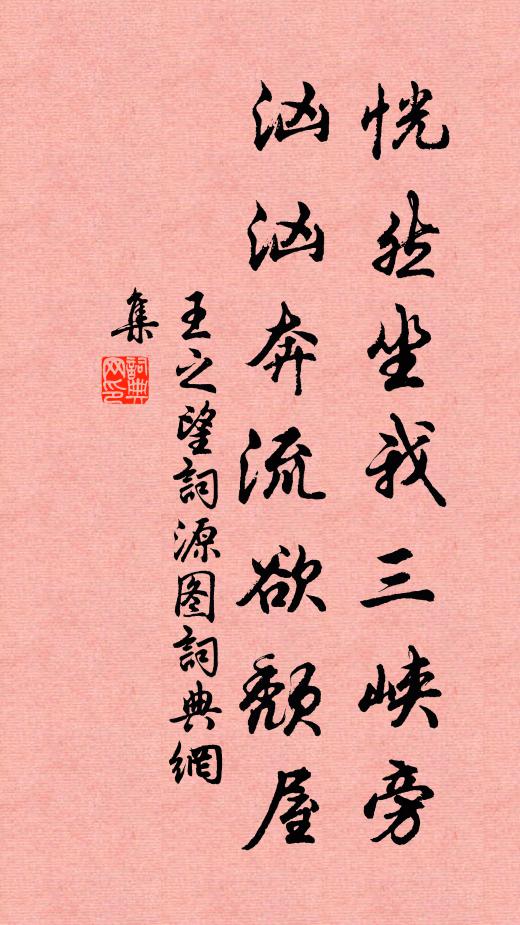 恍然坐我三峡旁
汹汹奔流欲颓屋
王之望詞源图詞典網
集
詞典网印